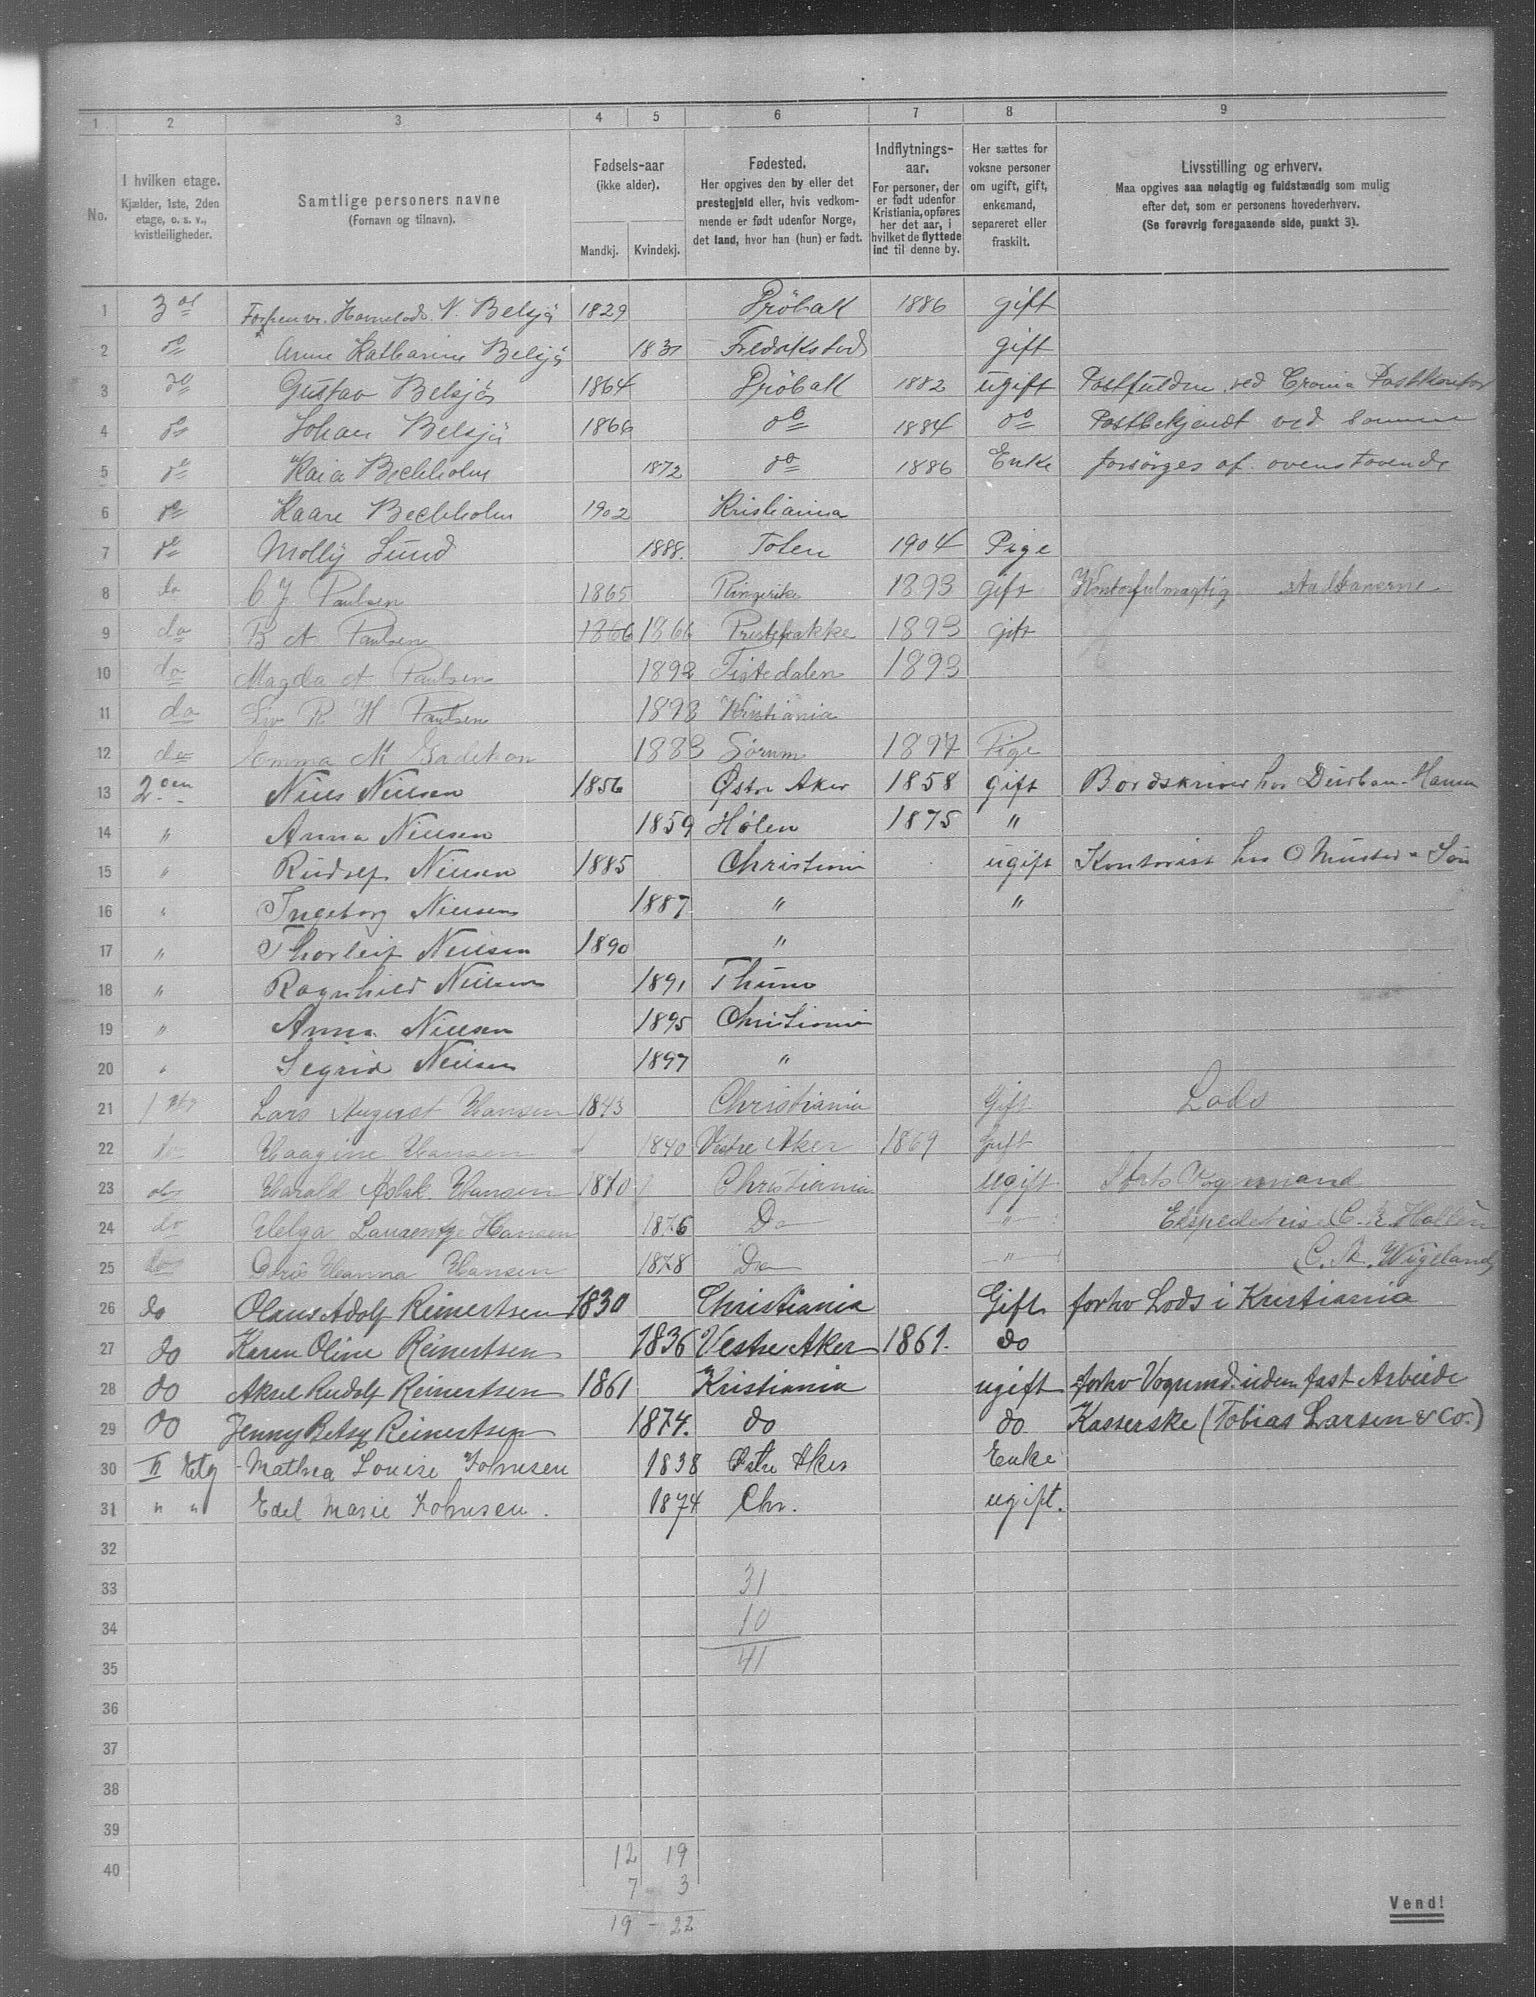 1 2 3 4 5 6 7 8 9
No. I hvilken etage. Kjælder, 1ste, 2den etage, o. s. v., kvistleiligheder. Samtlige personers navne (Fornavn og tilnavn). Fødsels-aar (ikke alder). Mandkj. Kvindekj. Fødested. Her opgives den by eller det prestegjeld eller, hvis vedkommende er født udenfor Norge, det land, hvor han (hun) er født. Indflytnings-aar. For personer, der er født udenfor Kristiania, opføres her det aar, i hvilket de flyttede ind til denne by. Her sættes for voksne personer om ugift, gift, enkemand, separeret eller fraskilt. Livsstilling og erhverv. Maa opgives saa nøiagtig og fuldstændig som mulig efter det, som er personens hovederhverv. (Se forøvrig foregaaende side, punkt 3).
1 3 N. Belsjø 1829 Drøbak 1886 gift
2 do Anne Katharine Belsjø Fredrikstad gift
3 do Gustav Belsjø 1864 Drøbak 1882 ugift ved Postkontor
4 do Johan Belsjø 1866 do 1884 do Postbetjendt ved samme
5 do Kaia Bechholm 1872 do 1886 Enke forsørges af ovenstaaende
6 do Kaare Bechholm 1902 Kristiania
7 do Molly Lund 1888. Toten 1904 Pige
8 do C J Paulsen 1865 Ringerike 1893 gift Kontorfulmægtig Statsbanerne
9 do B A Paulsen 1866 1866 Prestebakke 1893 gift
10 do Magda A Paulsen 1892 Tistedalen 1893
11 do Liv R H Paulsen 1893 Kristiania
12 do Emma M 1883 Sørum 1897 Pige
13 2den Niels Nielsen 1856 Østre Aker 1858 gift Bordskriver hos Hansen
14 " Anna Nielsen 1859 Hølen 1875 "
15 " Rudolf Nielsen 1885 Christiania ugift Kontorist hos O Mustad & Søn
16 " Ingeborg Nielsen 1887 " "
17 " Thorleif Nielsen 1890 "
18 " Ragnhild Nielsen 1891
19 " Anna Nielsen 1895 Christiania
20 " Sigrid Nielsen 1897 "
21 1 Etg Lars August Hansen 1843 Christiania Gift Lods
22 do Haagine Hansen 1840 Vestre Aker 1869 Gift
23 do Harald Aslak Hansen 1870 Christiania ugift Vognmand
24 do Helga Laurentze Hansen 1876 Do " Ekspeditrise
25 do Doris Hanna Hansen 1878 Do " Wigeland
26 do Olaus Adolf Reinertsen 1830 Christiania Gift forhv Lods i Kristiania
27 do Karen Oline Reinertsen 1836 Vestre Aker 1861. do
28 do Aksel Rudolf Reinertsen 1861 Kristiania ugift forhv Vognmd. uden fast Arbeide
29 do Jenny Betsy Reinertsen 1874. do do Kasserske (Tobias Larsen & Co.)
30 II Etg Mathea Louise Johnsen 1838 Østre Aker Enke
31 " " Edel Marie Johnsen. 1874 Chr. ugift.
32
33 31
34 10
35 41
36
37
38
39
40 12 19
7 3
19 - 22
Vend!